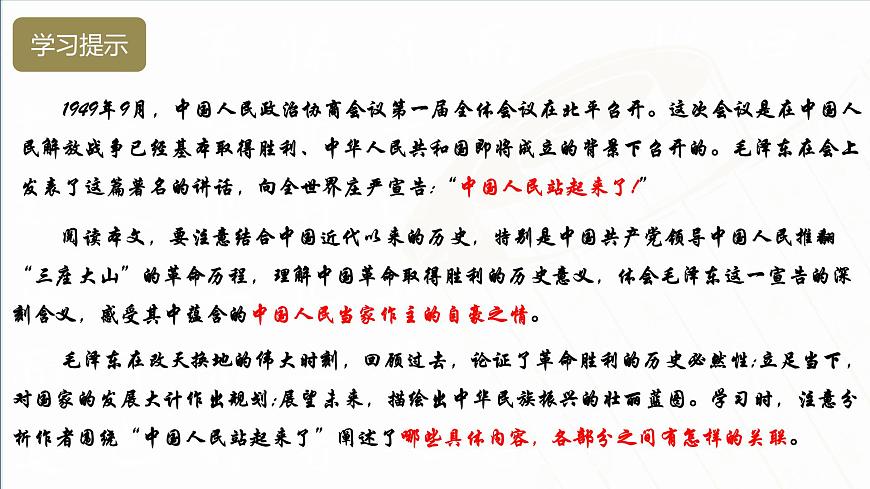 学习提示
1949年9月，中国人民政治协商会议第一届全体会议在北平召开。这次会议是在中国人
民解放战争已经基本取得胜利、中华人民共和国即将成立的背景下召开的。毛泽东在会上
发表了这篇著名的讲话，向全世界庄严宣告：“中国人民站起来了!”
阅读本文，要注意结合中国近代以来的历史，特别是中国共产党领导中国人民推翻
“三座大山”的革命历程，理解中国革命取得胜利的历史意义，体会毛泽东这一宣告的深
刻含义，感受其中蕴含的中国人民当家作主的自豪之情。
毛泽东在改天换地的伟大时刻，回顾过去，论证了革命胜利的历史必然性;立足当下，
对国家的发展大计作出规划;展望未来，描绘出中华民族振兴的壮丽蓝图。学习时，注意分
析作者围绕“中国人民站起来了”阐述了哪些具体内容，各部分之间有怎样的关联。